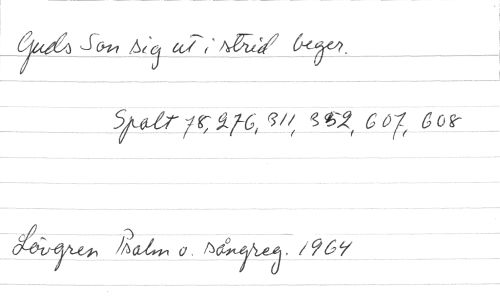 Guds Son sig ut i strid beger.
Spalt 78, 276, 311, 352, 607, 608
Lövgren Psalm o. sångreg. 1964